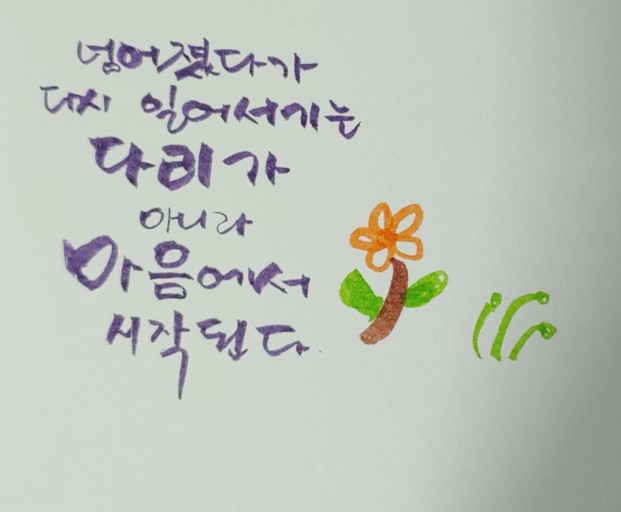 넘어졌다가
다시 일어서기는
다리가
아니라
마음에서
시작된다.